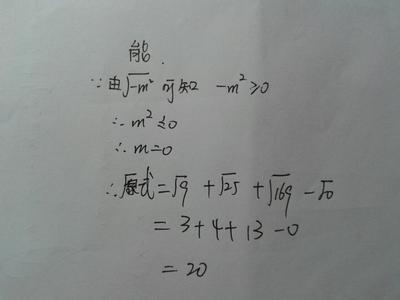 能.
∵由√-m² 可知 -m²≥0
∴m²≤0
∴m=0
∴原式=√9+√25+√169-√0
=3+4+13-0
=20